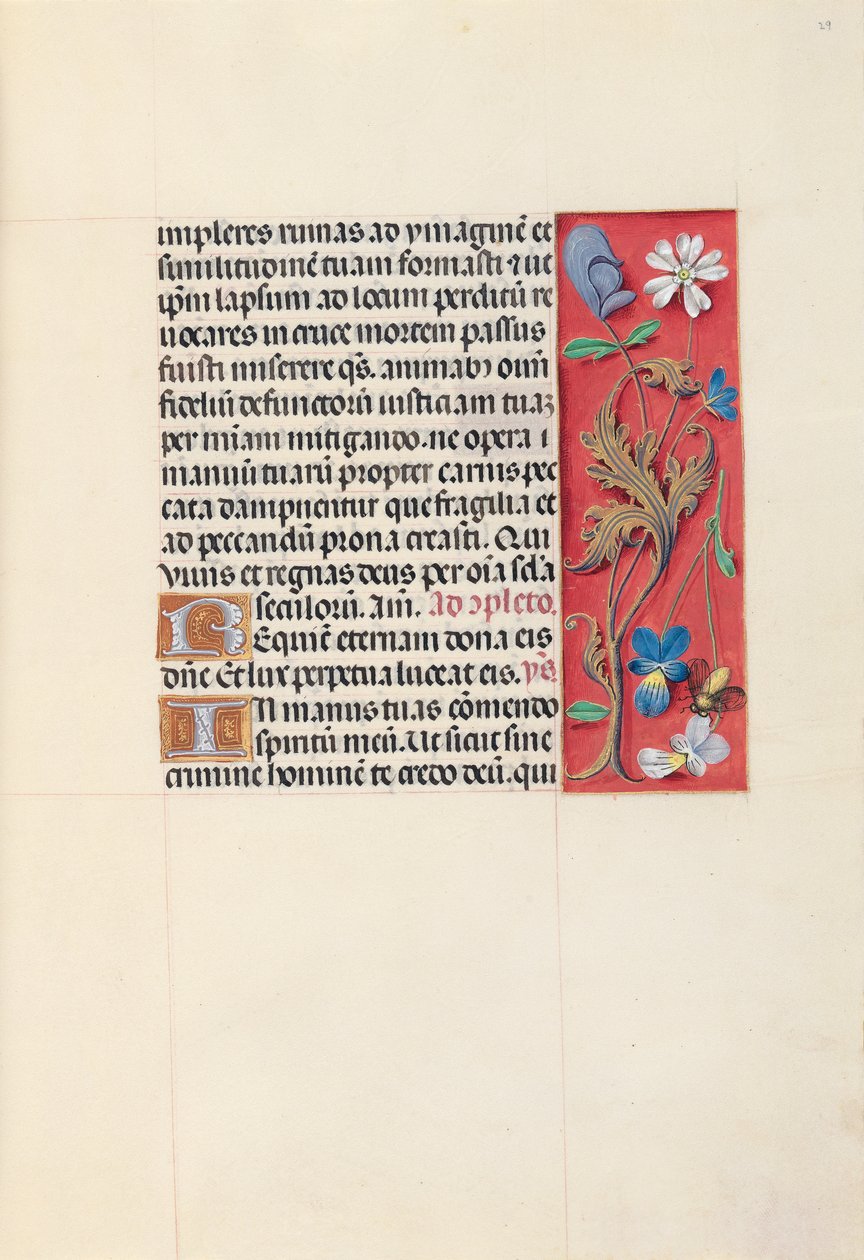 29
impleres ruinas ad ymaginē et
similitudinē tuam formasti ⁊ ue
ip̄m lapsum ad locum perditū re
uocares in cruce mortem passus
fuisti miserere q̄s. animabꝰ om̄i
fideliū defunctorū iusticiam tuaꝫ
per mīam mitigando. ne opera i
manuū tuarū propter carnis pec
cata dampnentur que fragilia et
ad peccandū prona creasti. Qui
viuis et regnas deus per oīa scl̄a
seculorū. Am̄. Ad ɔpleto.
REquiē eternam dona eis
dn̄e Et lux perpetua luceat eis. ꝟs̄.
IN manus tuas cōmendo
spiritū meū. Ut sicut sine
crimine hominē te credo deū. qui